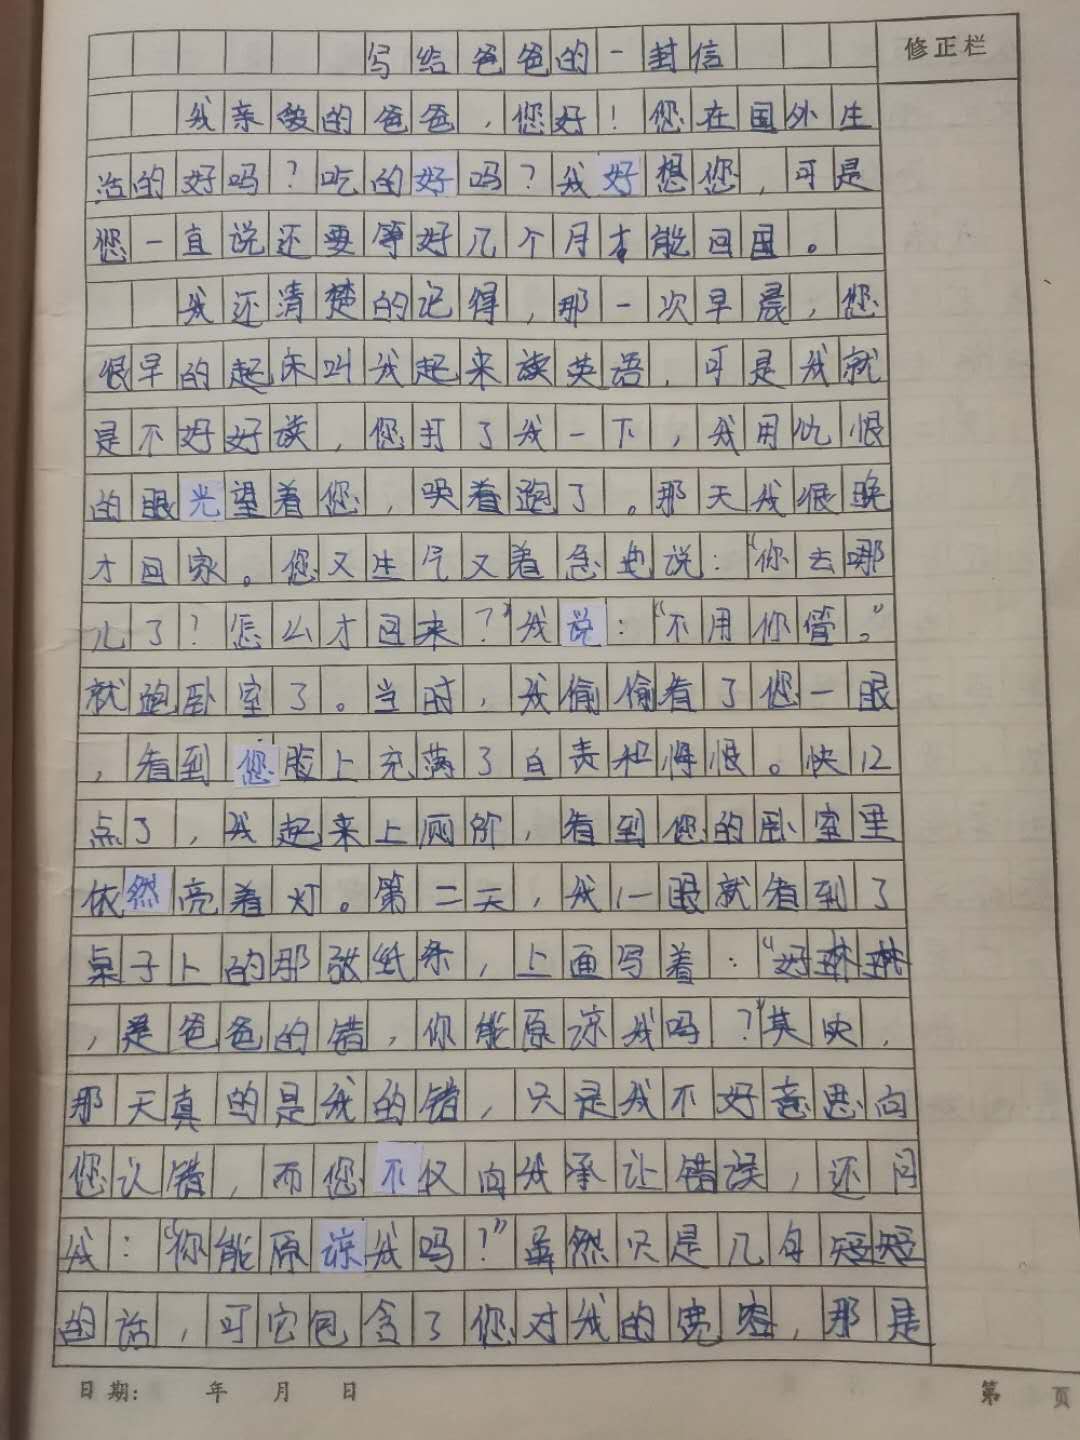 写给爸爸的一封信
修正栏
我亲敬的爸爸，您好！您在国外生
活的好吗？吃的好吗？我好想您，可是
您一直说还要等好几个月才能回国。
我还清楚的记得，那一次早晨，您
很早的起床叫我起来读英语，可是我就
是不好好读，您打了我一下，我用仇恨
的眼光望着您，哭着跑了。那天我很晚
才回家。您又生气又着急地说：“你去哪
儿了？怎么才回来？”我说：“不用你管。”
就跑卧室了。当时，我偷偷看了您一眼
，看到您脸上充满了自责和悔恨。快12
点了，我起来上厕所，看到您的卧室里
依然亮着灯。第二天，我一眼就看到了
桌子上的那张纸条，上面写着：“好琳琳
，是爸爸的错，你能原谅我吗？”其实，
那天真的是我的错，只是我不好意思向
您认错，而您不仅向我承认错误，还问
我：“你能原谅我吗？”虽然只是几句短短
的话，可它包含了您对我的宽容，那是
日期： 年 月 日
第 页